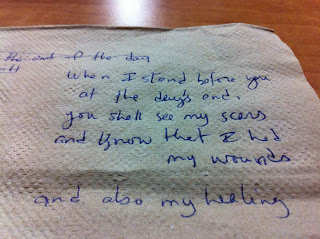 the end of the day
When I stand before you
at the day's end,
you shall see my scars
and know that I had
my wounds
and also my healing